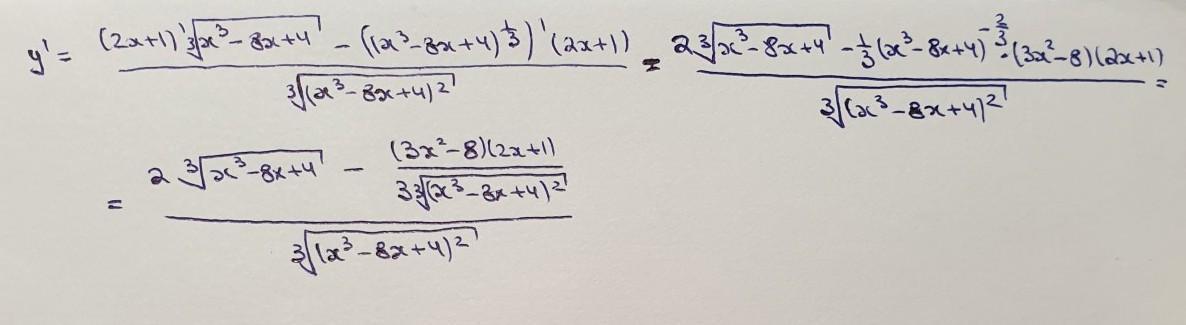 y' = \frac{(2x+1)'\sqrt[3]{x^3-8x+4} - ((x^3-8x+4)^{\frac{1}{3}})'(2x+1)}{\sqrt[3]{(x^3-8x+4)^2}} = \frac{2\sqrt[3]{x^3-8x+4} - \frac{1}{3}(x^3-8x+4)^{-\frac{2}{3}}\cdot(3x^2-8)(2x+1)}{\sqrt[3]{(x^3-8x+4)^2}} =
= \frac{2\sqrt[3]{x^3-8x+4} - \frac{(3x^2-8)(2x+1)}{3\sqrt[3]{(x^3-8x+4)^2}}}{\sqrt[3]{(x^3-8x+4)^2}}